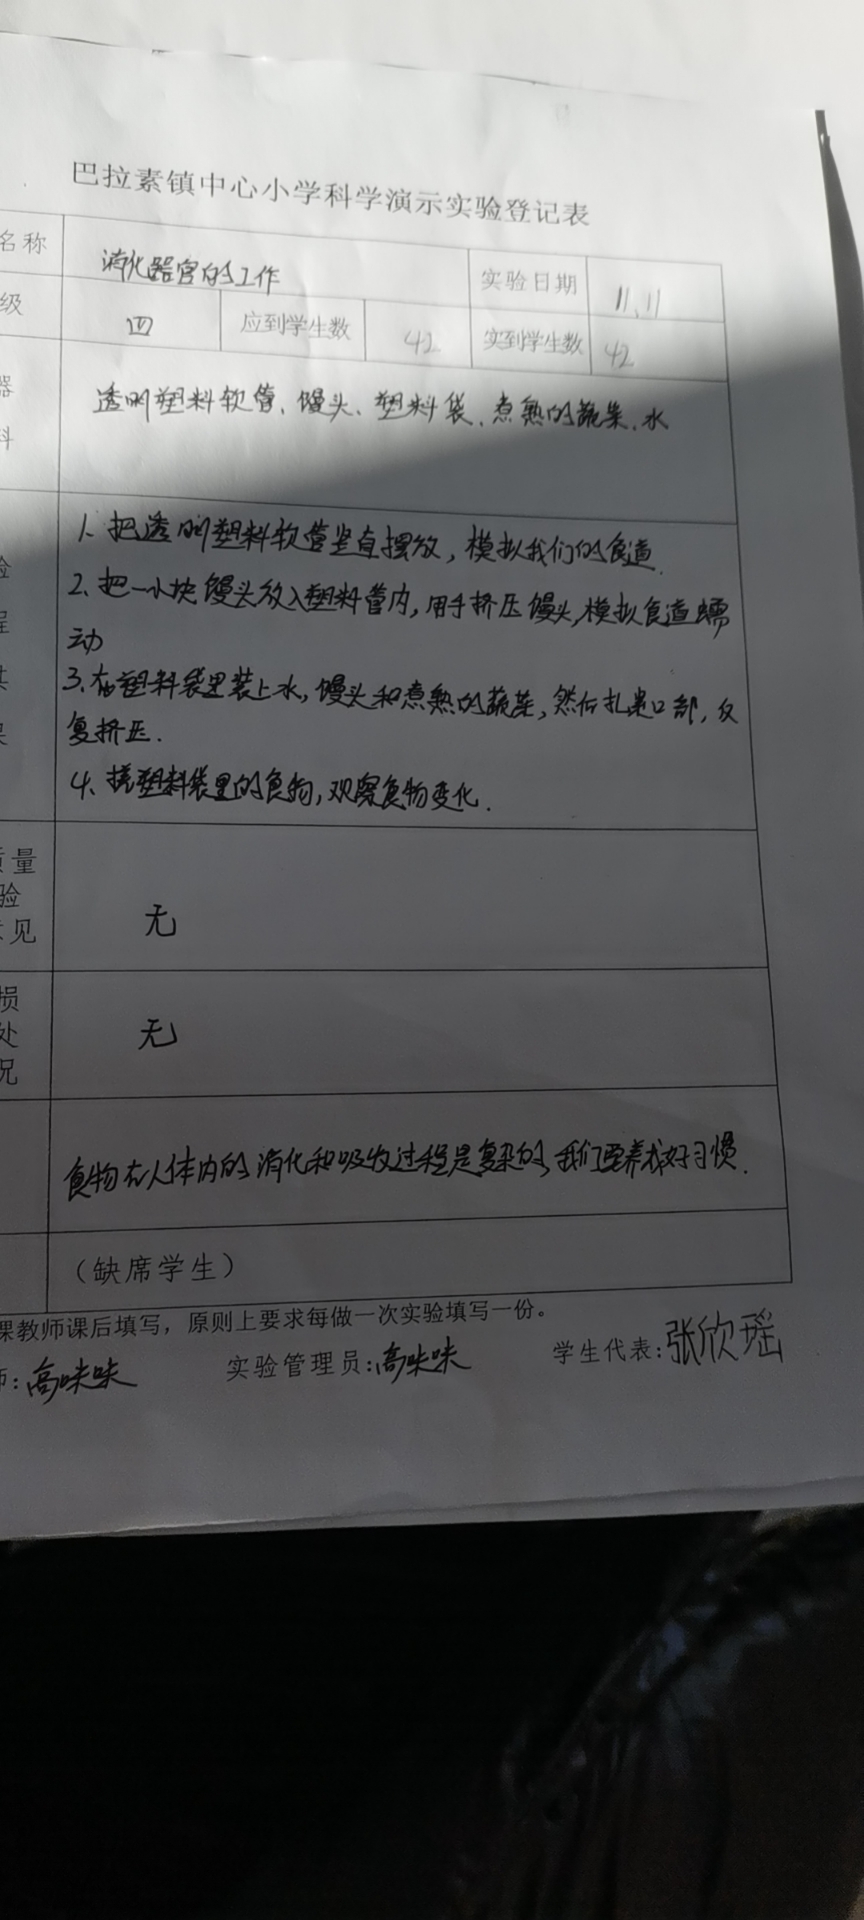 巴拉素镇中心小学科学演示实验登记表
名称 消化器官的工作 实验日期 11.11
级 四 应到学生数 42 实到学生数 42
器
科
透明塑料软管、馒头、塑料袋、煮熟的蔬菜、水
1、把透明塑料软管竖直摆放，模拟我们的食道.
2、把一小块馒头放入塑料管内，用手挤压馒头，模拟食道蠕
动
3、在塑料袋里装上水，馒头和煮熟的蔬菜，然后扎紧口部，反
复挤压.
4、搓塑料袋里的食物，观察食物变化.
验
程
其
果
质量
验
意见
无
损
处
况
无
食物在人体内的消化和吸收过程是复杂的，我们要养成好习惯.
（缺席学生）
课教师课后填写，原则上要求每做一次实验填写一份。
师：高咪咪 实验管理员：高咪咪 学生代表：张欣瑶